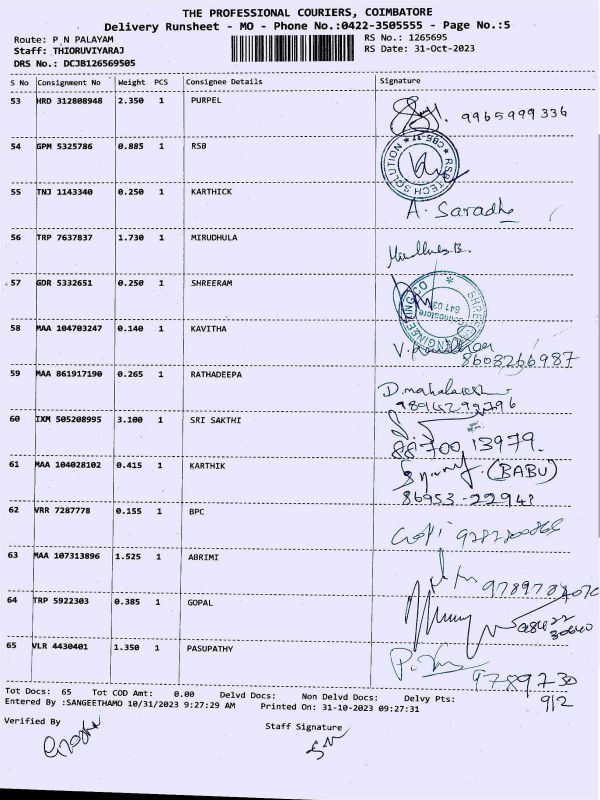 THE PROFESSIONAL COURIERS, COIMBATORE
Delivery Runsheet - MO - Phone No.:0422-3505555 - Page No.:5
Route: P N PALAYAM RS No.: 1265695
Staff: THIORUVIYARAJ RS Date: 31-Oct-2023
DRS No.: DCJB126569505
S No Consignment No Weight PCS Consignee Details Signature
53 HRD 312808948 2.350 1 PURPEL 9965999336
54 GPM 5325786 0.885 1 RSB
55 TNJ 1143340 0.250 1 KARTHICK A. Saradha
56 TRP 7637837 1.730 1 MIRUDHULA
57 GDR 5332651 0.250 1 SHREERAM
58 MAA 104703247 0.140 1 KAVITHA 8608266987
59 MAA 861917190 0.265 1 RATHADEEPA
60 IXM 505208995 3.100 1 SRI SAKTHI 88700 13979.
61 MAA 104028102 0.415 1 KARTHIK (BABU)
62 VRR 7287778 0.155 1 BPC
63 MAA 107313896 1.525 1 ABRIMI
64 TRP 5922303 0.385 1 GOPAL
65 VLR 4430401 1.350 1 PASUPATHY
Tot Docs: 65 Tot COD Amt: 0.00 Delvd Docs: Non Delvd Docs: Delvy Pts:
Entered By :SANGEETHAMO 10/31/2023 9:27:29 AM Printed On: 31-10-2023 09:27:31
Verified By Staff Signature